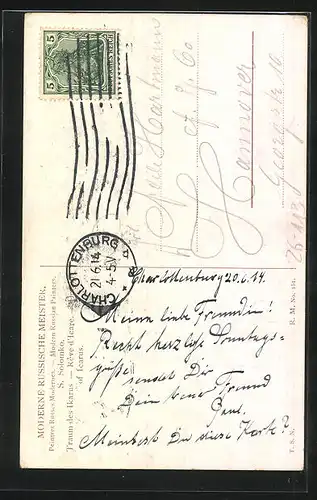 MODERNE RUSSISCHE MEISTER.
Peintres Russes Modernes. — Modern Russian Painters.
S. Solomko.
Traum des Ikarus — Rêve d'Icare.
of Icarus
5 5
CHARLOTTENBURG
21.6.14
4-5V
Hartmann
Hannover
Georgstr. 10
Charlottenburg 20.6.14.
Meine liebe Freundin!
Recht herzliche Sonntags-
grüße
sendet Dir
Dein treuer Freund
Paul.
Meintest Du diese Karte?
R. M. No.
T. S. N.